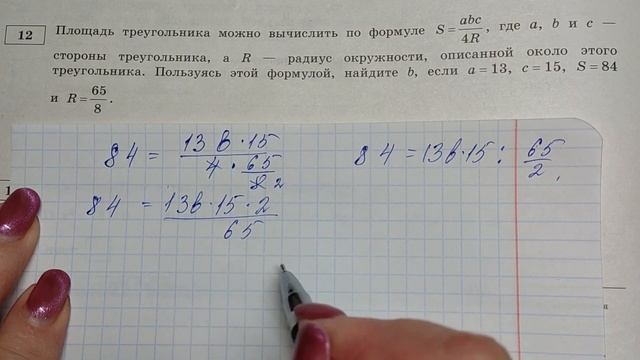 12 Площадь треугольника можно вычислить по формуле S = abc/4R, где a, b и c —
стороны треугольника, а R — радиус окружности, описанной около этого
треугольника. Пользуясь этой формулой, найдите b, если a = 13, c = 15, S = 84
и R = 65/8.
84 = 13 b · 15 / 4 · 65/8 2
84 = 13b · 15 : 65/2
84 = 13b · 15 · 2 / 65